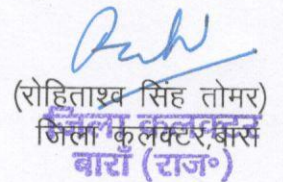 (रोहिताश्व सिंह तोमर)
जिला कलक्टर
जिला कलेक्टर,बारां
बारां (राज॰)